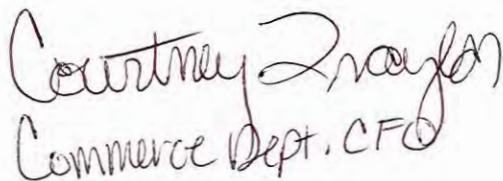 Courtney Traylor
Commerce Dept. CFO